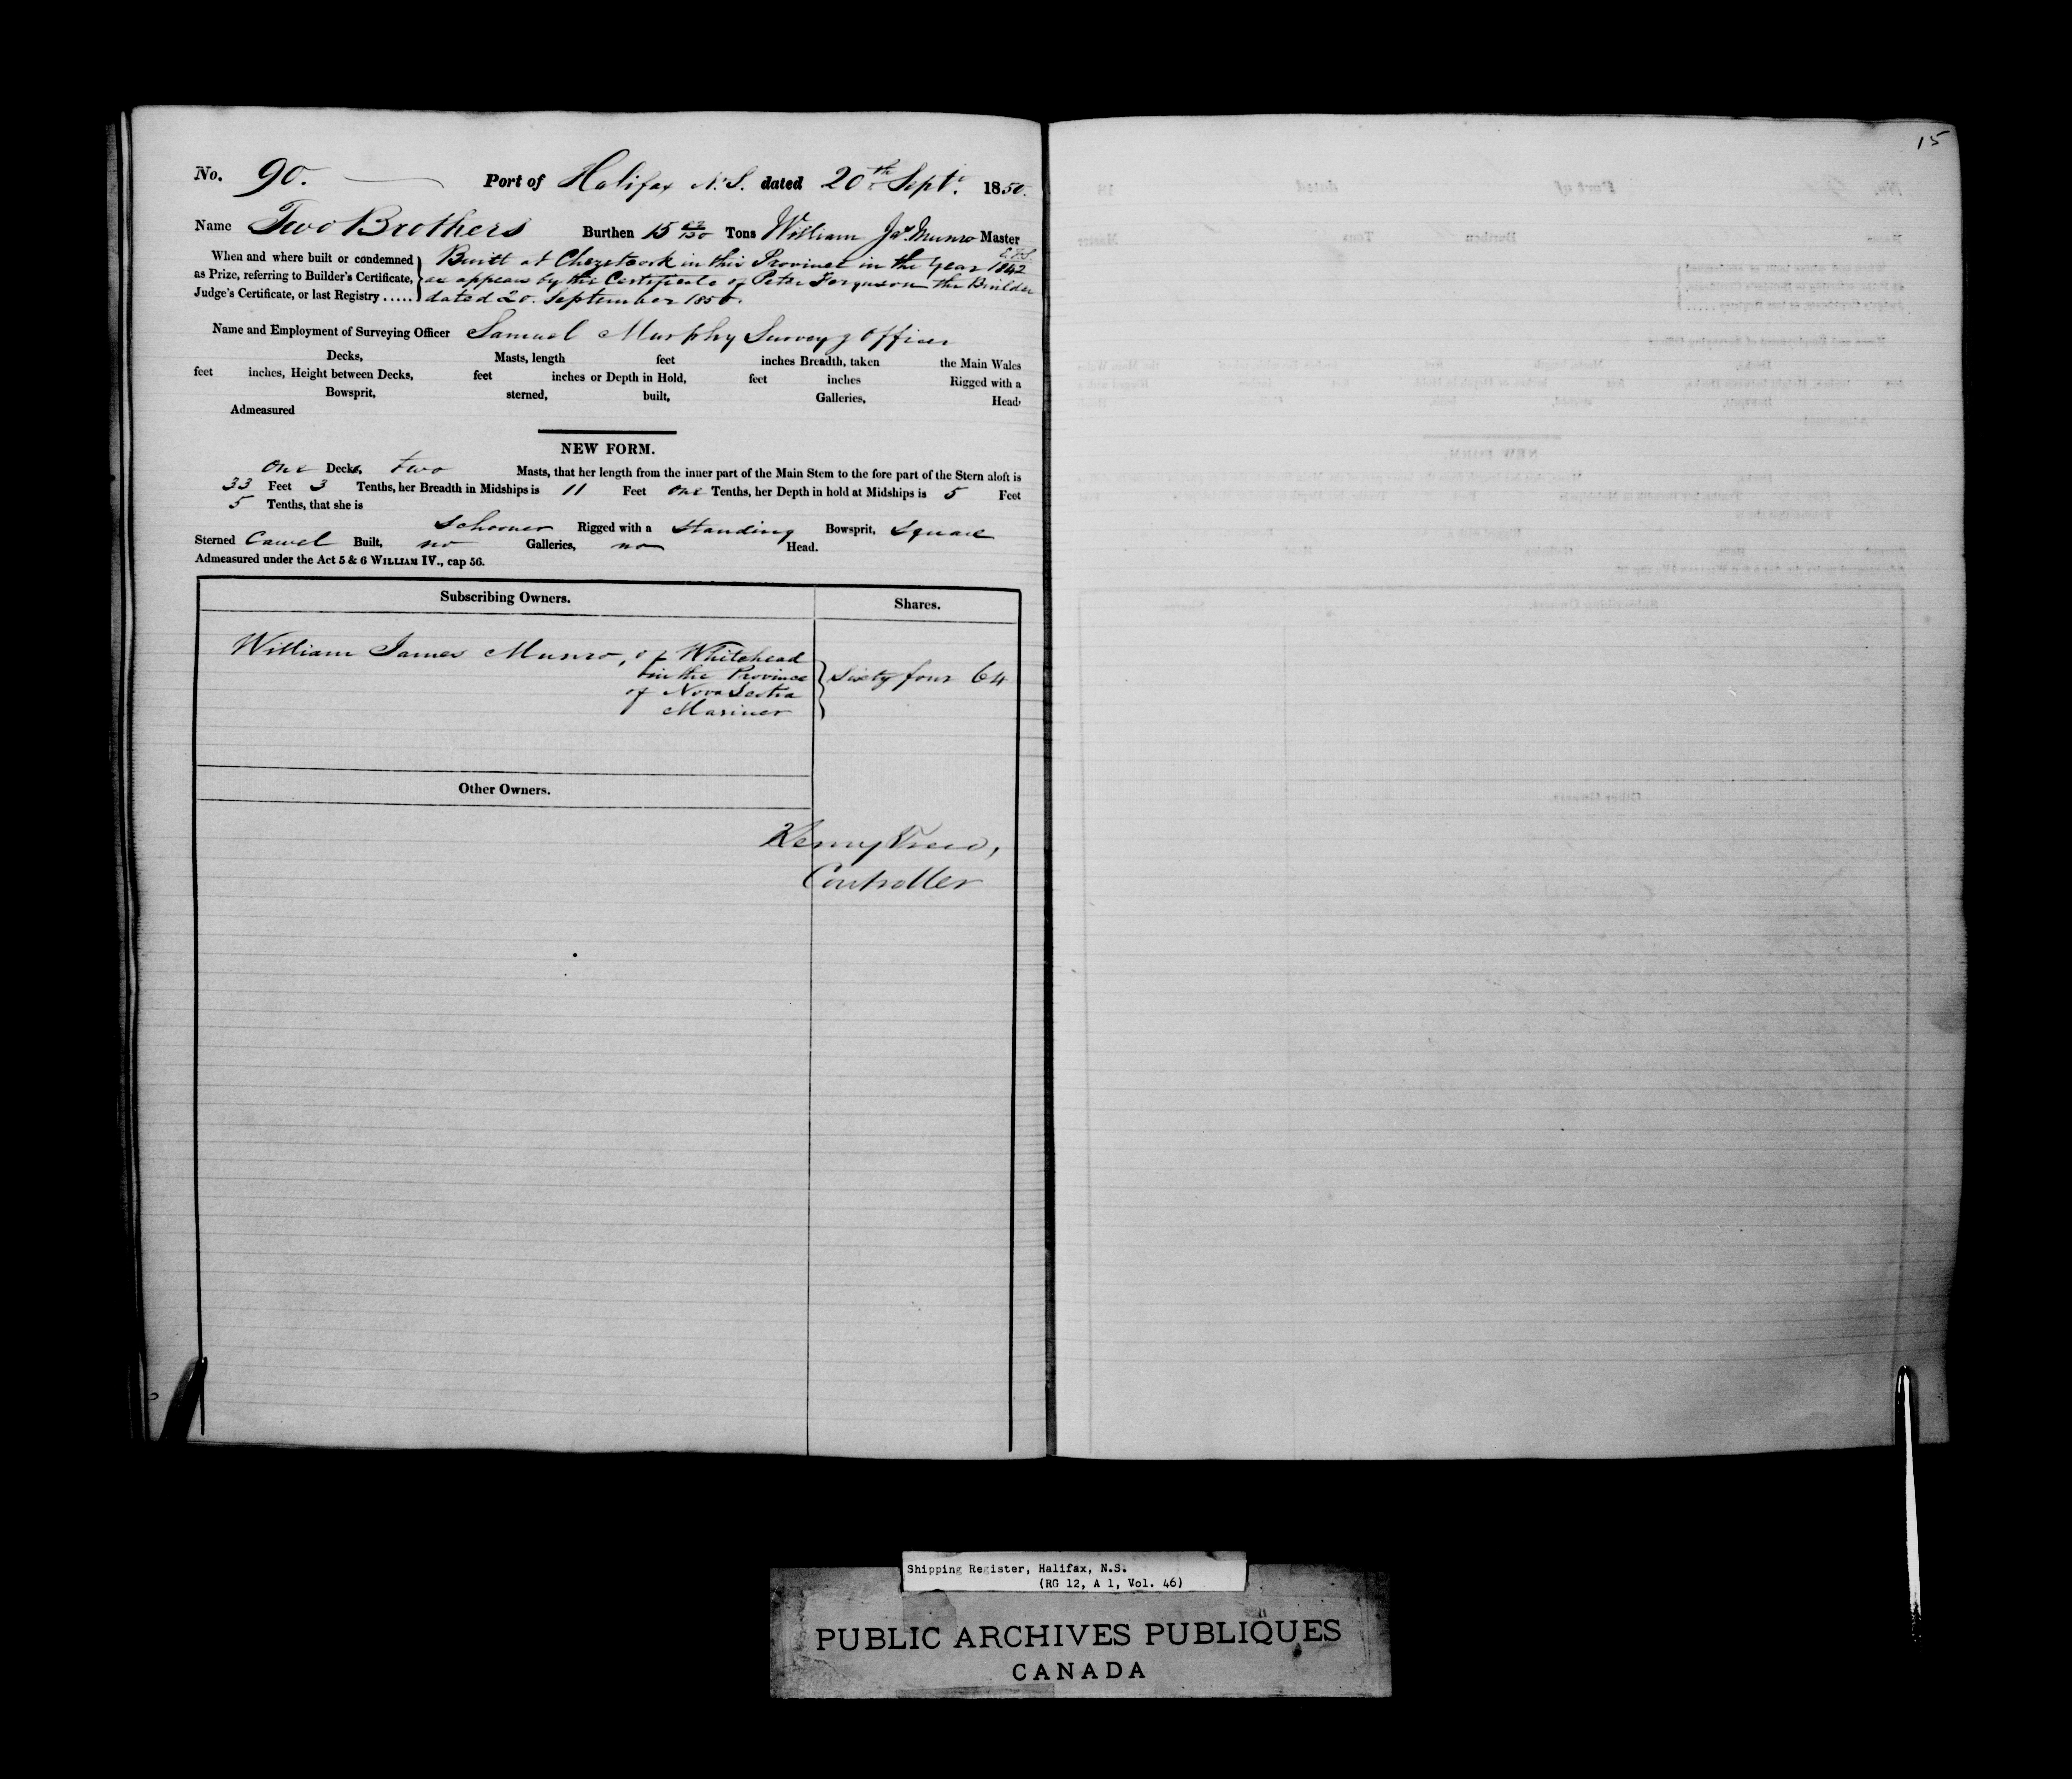 No. 90. Port of Halifax N.S. dated 20th Sept. 1850.
Name Two Brothers Burthen 15 Tons William Jas. Munro Master
When and where built or condemned
as Prize, referring to Builder's Certificate,
Judge's Certificate, or last Registry .....
Built at Chezetcook in this Province in the Year 1842
as appears by the Certificate of Peter Ferguson the Builder
dated 20. September 1850.
Name and Employment of Surveying Officer Samuel Murphy Surveyg Officer
Decks, Masts, length feet inches Breadth, taken the Main Wales
feet inches, Height between Decks, feet inches or Depth in Hold, feet inches Rigged with a
Bowsprit, sterned, built, Galleries, Head,
Admeasured
NEW FORM.
One Deck, two Masts, that her length from the inner part of the Main Stem to the fore part of the Stern aloft is
33 Feet 3 Tenths, her Breadth in Midships is 11 Feet one Tenths, her Depth in hold at Midships is 5 Feet
5 Tenths, that she is
Schooner Rigged with a Standing Bowsprit, Square
Sterned Carvel Built, no Galleries, no Head.
Admeasured under the Act 5 & 6 WILLIAM IV., cap 56.
Subscribing Owners. Shares.
William James Munro, of Whitehead
in the Province
of Nova Scotia
Mariner
Sixty four 64
Other Owners.
Controller
15
Shipping Register, Halifax, N.S.
(RG 12, A 1, Vol. 46)
PUBLIC ARCHIVES PUBLIQUES
CANADA